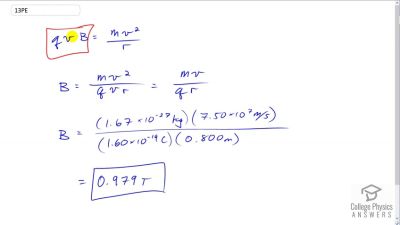 13PE
q v B = m v² / r
B = m v² / q v r = m v / q r
B = (1.67 × 10⁻²⁷ kg)(7.50 × 10⁷ m/s) / (1.60 × 10⁻¹⁹ C)(0.800 m)
= 0.979 T
College Physics
ANSWERS